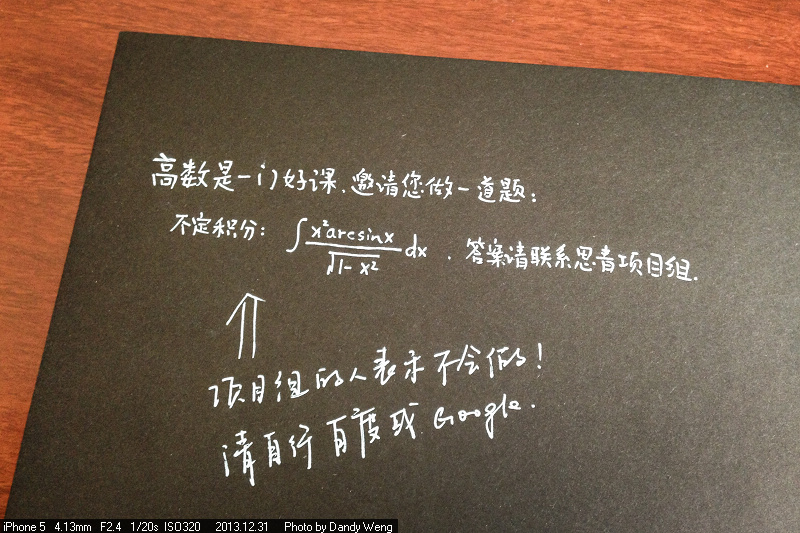 高数是一门好课，邀请您做一道题：
不定积分：∫ x²arcsinx / √(1-x²) dx ，答案请联系思青项目组.
项目组的人表示不会做！
请自行百度或Google.
iPhone 5 4.13mm F2.4 1/20s ISO320 2013.12.31 Photo by Dandy Weng